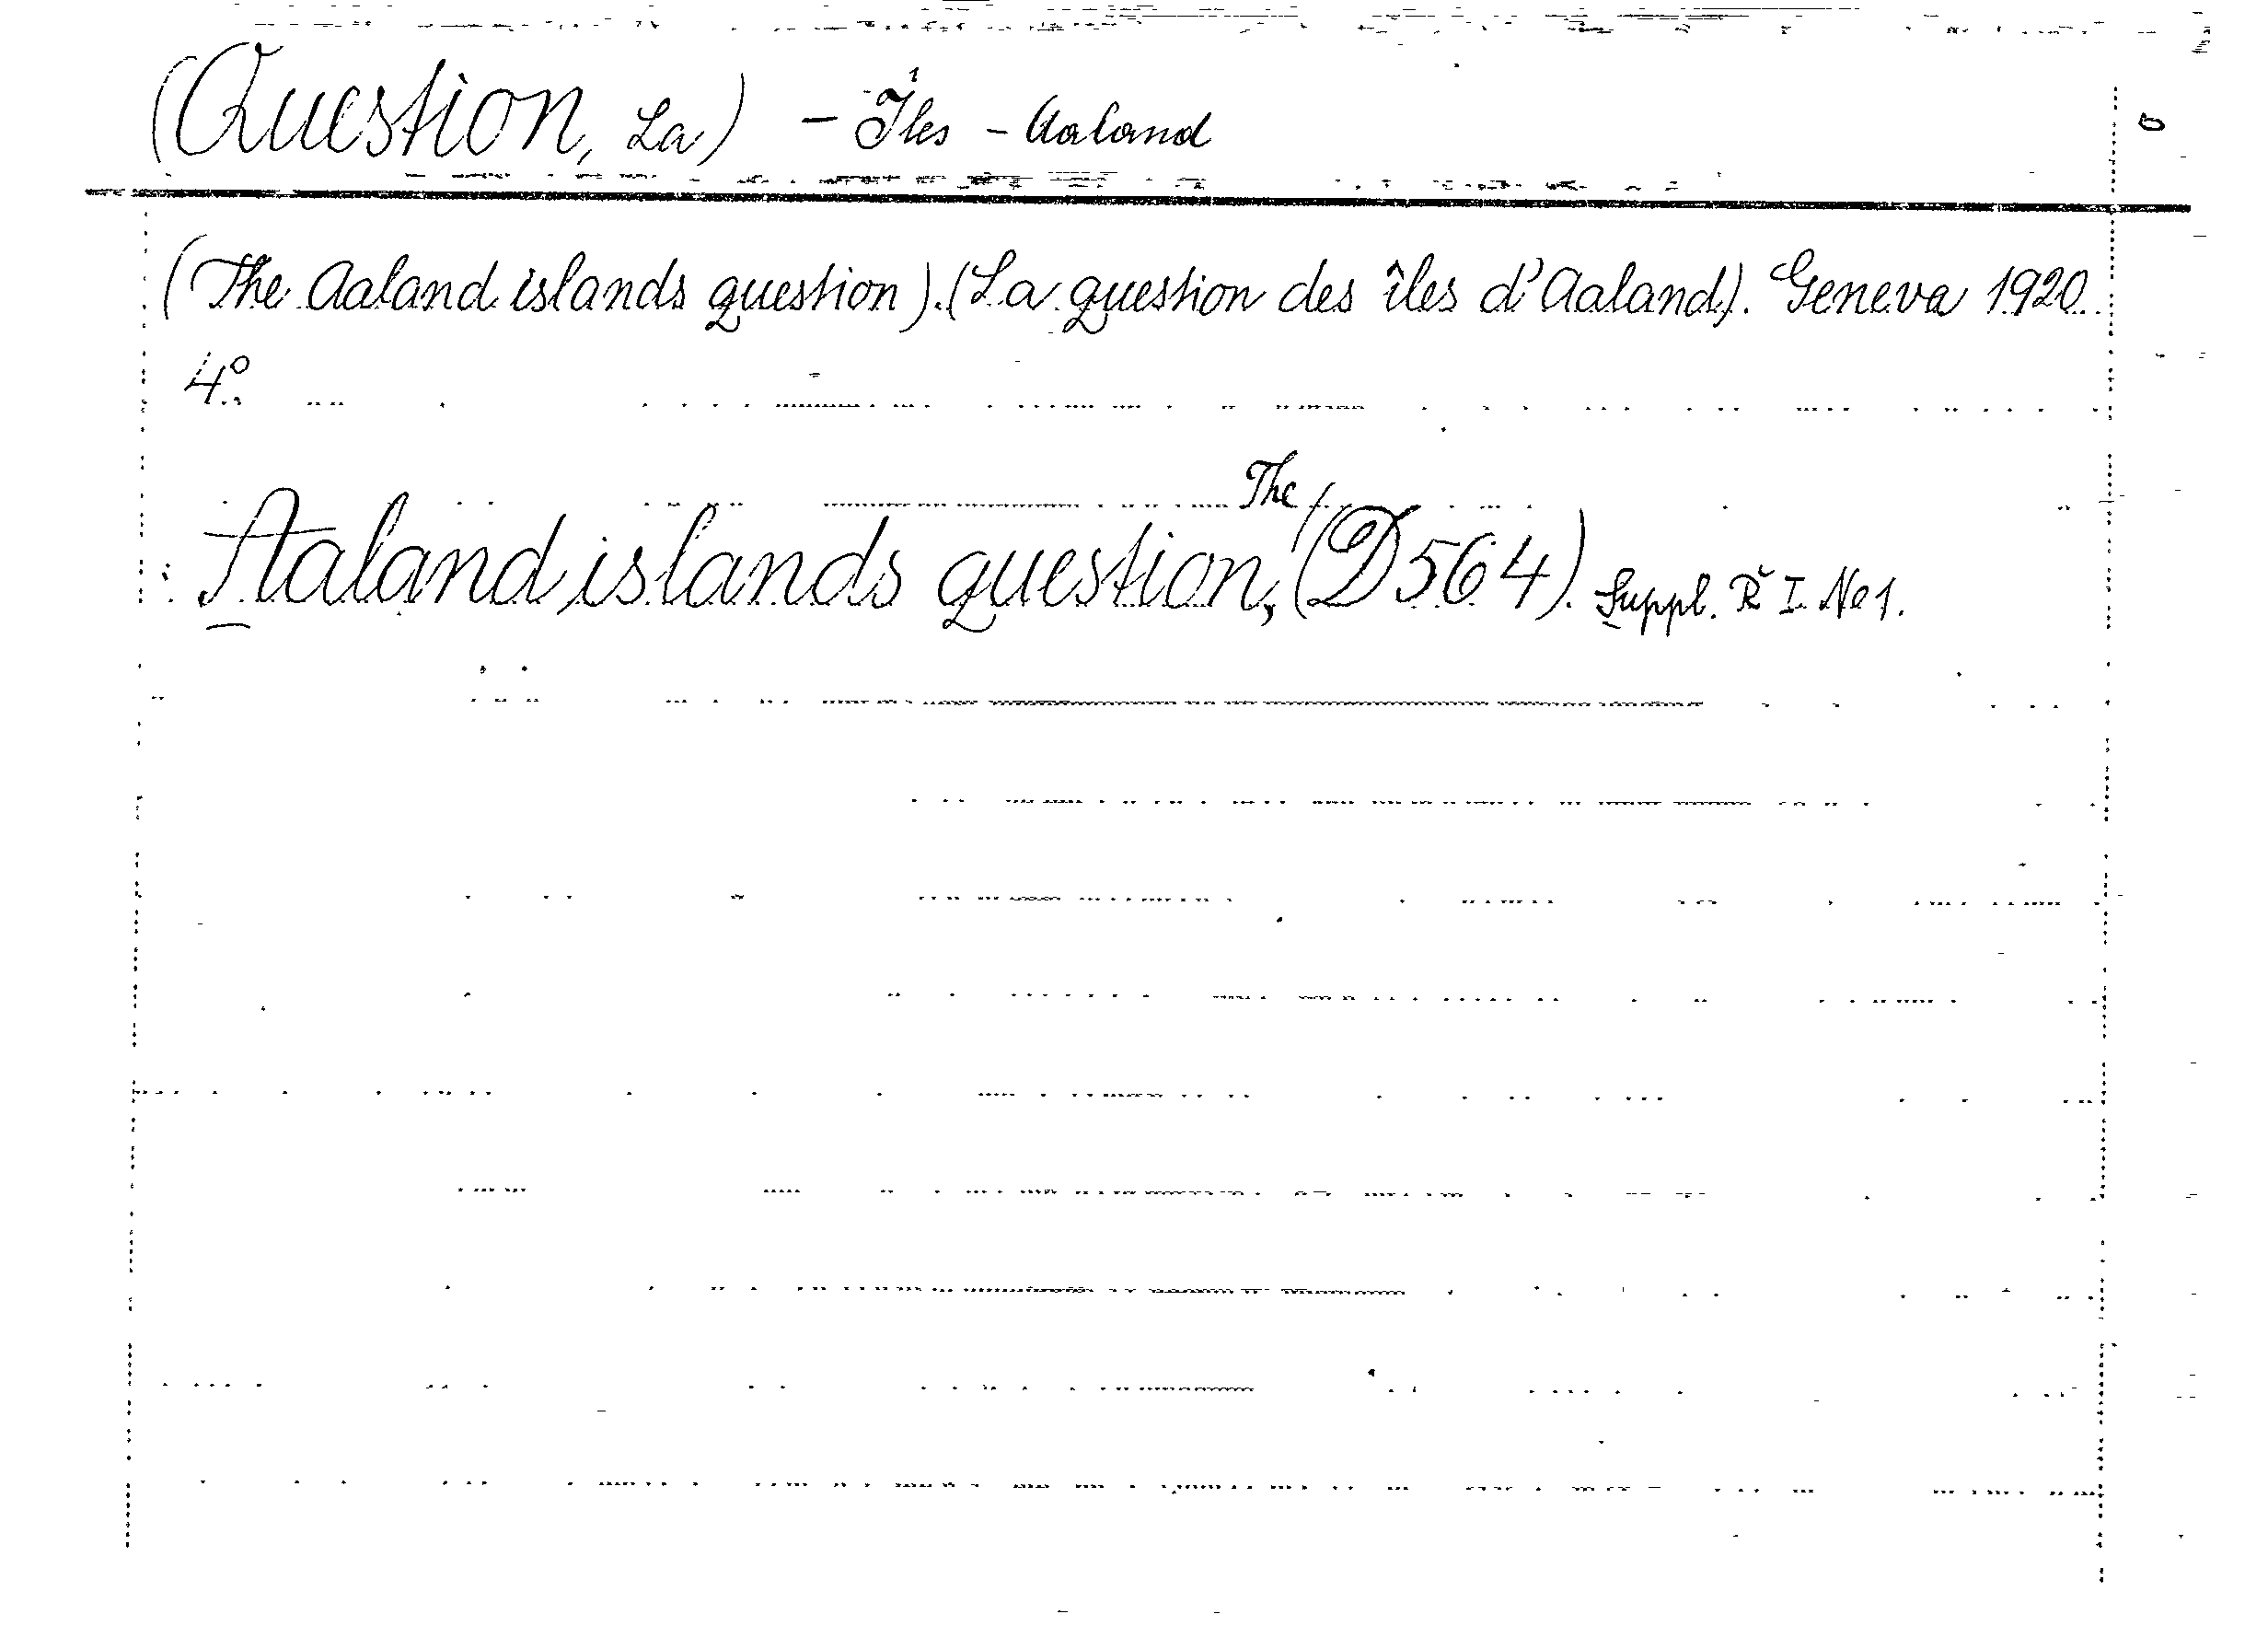 (Question, La) - Îles - Aaland
(The Aaland islands question). (La question des îles d'Aaland). Geneva 1920.
4:o
Aaland islands question, The (D564). Suppl. R I. No 1.